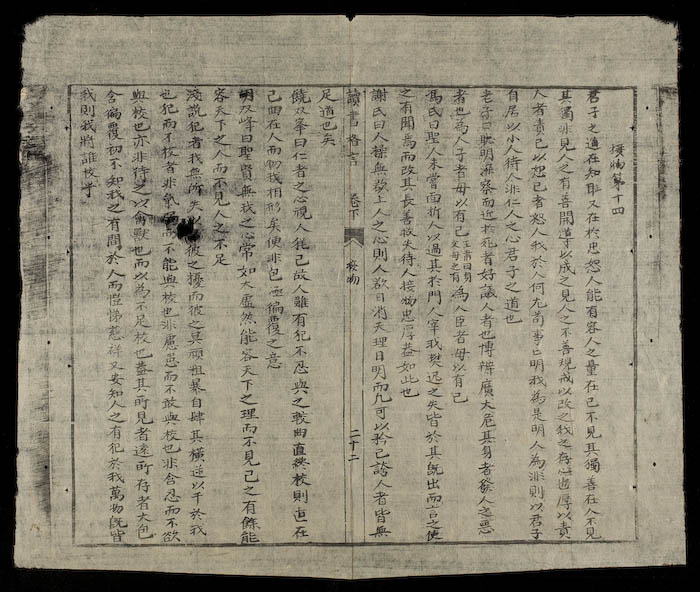 接物第十四
君子之道在知耻又在於忠恕人能有容人之量在己不見其獨善在人不見
其獨非見人之有善開導以成之見人之不善規戒以改之我之存心過厚以責
人者責己以恕己者恕人我於人何尤苟事上明我為是明人為非則以君子
自居以小人待人非仁人之心君子之道也
老子曰聰明深察而近於死者好議人者也博辯廣大危其身者發人之惡
者也為人子者毋以有己為人臣者毋以有己
馮氏曰聖人未嘗面折人以過其於門人宰我樊遲之失皆於其既出而言之使
之有聞焉而改其長善救失待人接物忠厚蓋如此也
謝氏曰人操無欲上人之心則人欲日消天理日明而凡可以矜己誇人者皆無
讀書格言 卷下 接物 二十二
足道也矣
饒双峯曰仁者之心視人猶己故人雖有犯不忍與之較曲直終校則直在
己曲在人而物我相形矣便非包 徧覆之意
胡双峰曰聖賢無我之心常如太虛然能容天下之理而不見己之有餘能
容天下之人而不見人之不足
淺說犯者我無所失 彼之擾而彼之冥頑粗暴自肆其橫逆以干於我
也犯而不校者非氣 而不能與校也非慮患而不敢與校也非含忍而不欲
與校也亦非待之以禽獸也而以為不足校也蓋其所見者遠所存者大包
含徧覆初不知我之有間於人而愷悌慈祥又安知人之有犯於我萬物既皆
我則我將誰校乎